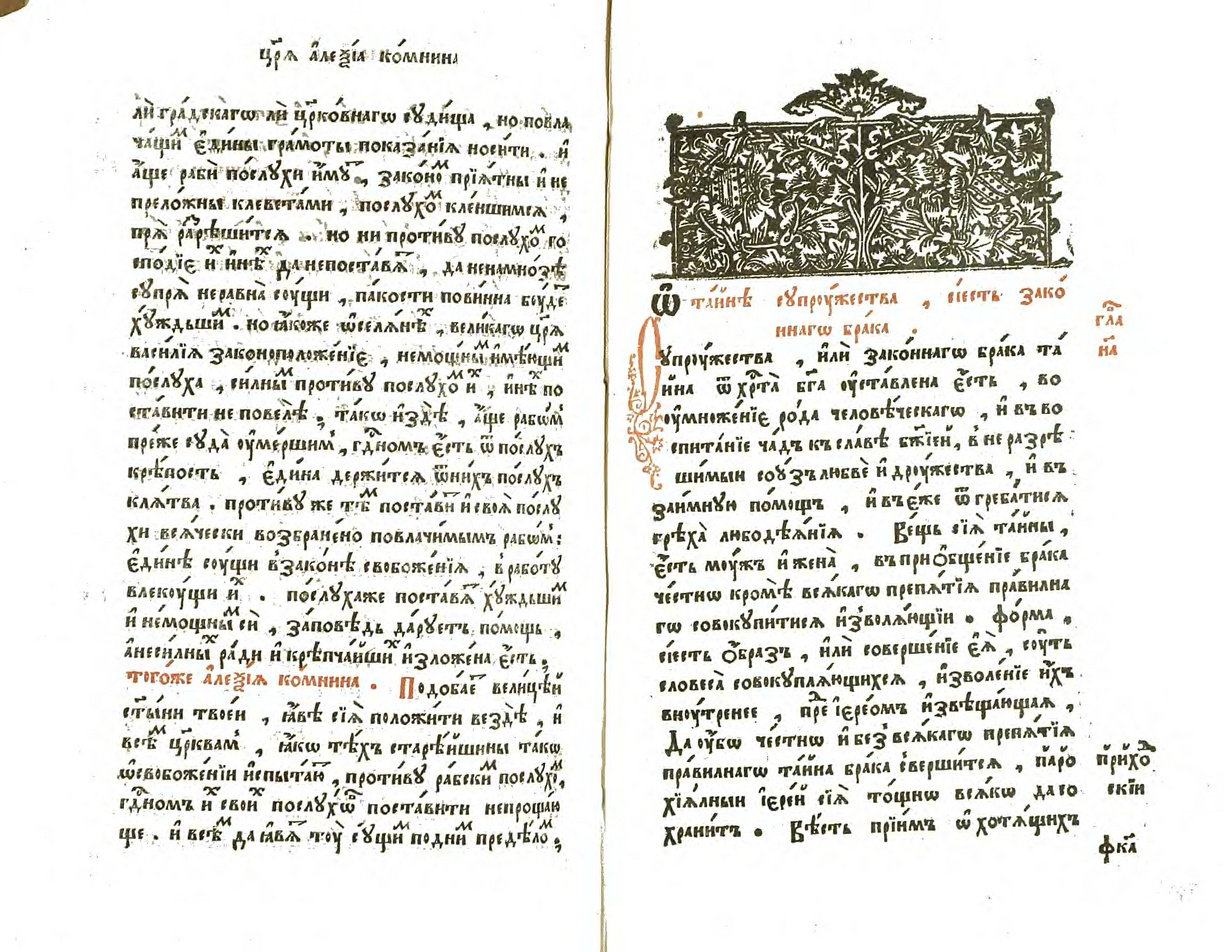 цр҃ѧ а҆леѯі́а комнина
лѝ гра́дскагѡ лѝ цр҃ко́внагѡ сꙋди́ща , но повла
чащи^м є҆ди́ны гра́моты показа́нїѧ носи́ти . и҆
а҆́ще рабѝ по́слꙋхи и҆́мꙋ^т , зако́но^м прїѧ́тны и҆ не
прело́жны клевета́ми , послꙋ́хо^м кле́ншимсѧ ,
прѧ̀ ра^зрѣши́тсѧ . но ни проти́вꙋ послꙋ́хо^м го
спо́дїє и҆^х и҆́нѣ^х да непоста́вѧ^т , да ненамно́зѣ
сꙋпрѧ̀ нера́вна со́ущи , па́кости пови́нна бо́уде^т
хꙋ́ждьши^м . но ꙗ҆́коже ѡ҆селѧ́нѣ^х , вели́кагѡ цр҃ѧ̀
васи́лїѧ законоположе́нїє , немо́щны^м и҆мѣ́ющи^м
по́слꙋха , си́лны^м проти́вꙋ по́слꙋхо^м и҆^х , и҆́нѣ^х по
ста́вити не повелѣ̀ , та́кѡ и҆ здѣ̀ , а҆́ще рабѡ́м
пре́же сꙋда̀ оу҆ме́ршим , гдⷭ҇номъ є҆́сть ѿ по́слꙋхъ
крѣ́пость , є҆ди́на держи́тсѧ ѿни́хъ по́слꙋхъ
клѧ́тва . проти́вꙋ же тѣ^м поста́ви^ти и҆ своѧ̀ по́слꙋ
хи всѧ́чески возбране́но повлачи́мымъ рабѡ́м:
є҆ди́нѣ со́ущи в̾зако́нѣ свобоже́нїѧ , в̾рабо́тꙋ
влеко́ущи и҆^х . по́слꙋхаже поста́вѧ^т хꙋ́ждьши^м
и҆ немощны^мсѝ , за́повѣдь да́рꙋетъ по́мощь ,
а҆неси́лны^х ра́ди и҆ крѣпча́йши^х и҆зложе́на є҆́сть .
тогѡ́же а҆леѯі́ѧ комни́на . Подоба́е^т вели́цѣй
ст҃ы́ни твое́й , ꙗ҆́вѣ сїѧ̀ положи́ти вездѣ̀ , и҆
всѣ^м цр҃квам , ꙗ҆́кѡ тѣ́хъ старѣ́йшины та́кѡ
ѡ҆свобоже́нїи и҆спыта́ю^т , проти́вꙋ ра́бски^м по́слꙋхо^м,
гдⷭ҇номъ и҆^х свои^х по́слꙋхѡ^в поста́вити непроща́ю
ще . и҆ всѣ^м да ꙗ҆́вѧ^т то́у сꙋ́щи^м подни^м предѣ́ло^м ,
Ѡ҆ та́йнѣ сꙋпро́ужества , сі́есть зако́
ннагѡ бра́ка .
гла
на
Сꙋпро́ужества , и҆лѝ зако́ннагѡ бра́ка та́
йна ѿ хрⷭ҇та̀ бг҃а оу҆ста́влена є҆́сть , во
оу҆множе́нїє ро́да человѣ́ческагѡ , и҆ въ во
спита́нїе ча́дъ къ сла́вѣ бж҃їей , в̾ не разрѣ
ши́мыи соу́зъ любвѐ и҆ дро́ужества , и҆ въ
заи́мнꙋю по́мощъ , и҆ въ є҆́же ѿгреба́тисѧ
грѣха̀ любодѣѧ́нїѧ . Ве́щь сїѧ̀ та́йны ,
є҆́сть мо́ужъ и҆ жена̀ , въ прио҆бще́нїе бра́ка
че́стнѡ кромѣ̀ всѧ́кагѡ препѧ́тїѧ пра́вилна
гѡ совокꙋпи́тисѧ и҆зволѧ́ющїи . фо́рма ,
сі́есть ѻ҆́бразъ , и҆лѝ соверше́нїе є҆ѧ̀ , со́уть
словеса̀ совокꙋплѧ́ющихсѧ , и҆зволе́нїе и҆́хъ
вно́утренее , пре^д і҆ере́омъ и҆звѣща́ющаѧ ,
Да оу҆́бѡ че́стнѡ и҆ без̾ всѧ́кагѡ препѧ́тїѧ
пра́вилнагѡ та́йна бра́ка сверши́тсѧ , паро
хїѧ́лныи і҆ере́й сїѧ̀ то́щнѡ всѧ́кѡ да со
храни́тъ . Вѣ́сть прїи́мъ ѡ҆ хотѧ́щихъ
прихо^д
скїи
фк҃а